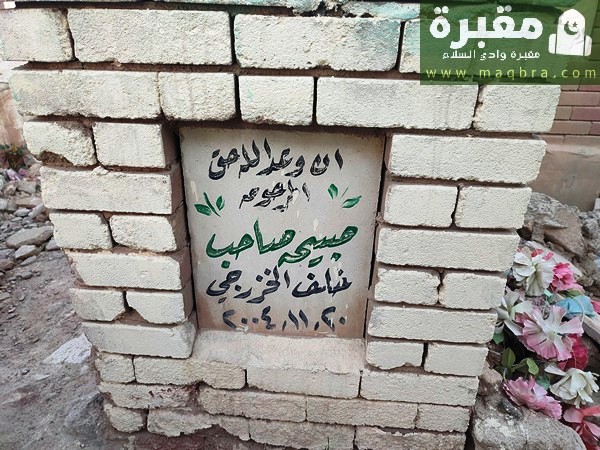 مقبرة
مقبرة وادي السلام
www.maqbra.com
ان وعد الله حق
المرحومه
صبيحه صاحب
خلف الخزرجي
٢٠٠٤،١١،٢٠